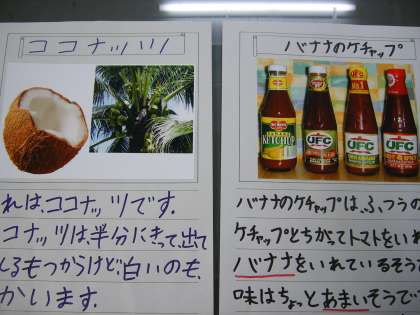 ココナッツ
れは、ココナッツです。
コナッツは、半分にきって、出て
るもつからけど、白いのも、
かいます。
バナナのケチャップ
KETCHUP
UFC
UFC
UFC
バナナのケチャップは、ふつうの
ケチャップとちがってトマトをいれ
バナナをいれているそう
味はちょっとあまいそうで